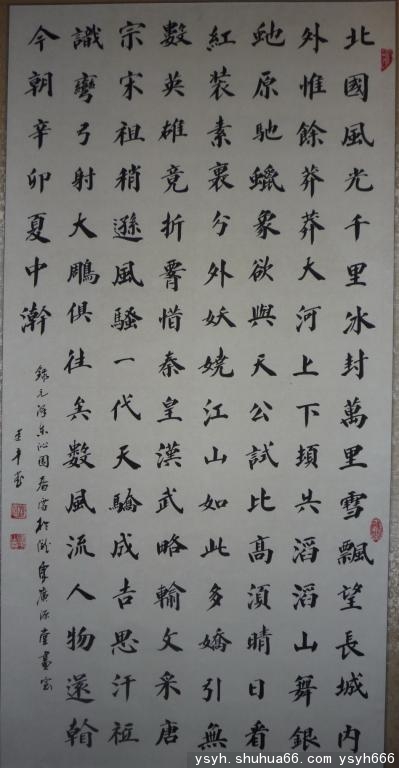 北國風光千里冰封萬里雪飄望長城内
外惟餘莽莽大河上下頓失滔滔山舞銀
虵原馳蠟象欲與天公試比高須晴日看
紅裝素裹分外妖嬈江山如此多嬌引無
數英雄竟折腰惜秦皇漢武略輸文采唐
宗宋祖稍遜風騷一代天驕成吉思汗祗
識彎弓射大鵰俱往矣數風流人物還看
今朝辛卯夏中澣
錄毛澤東沁園春雪於廣源堂畫室
ysyh.shuhua66.com ysyh666